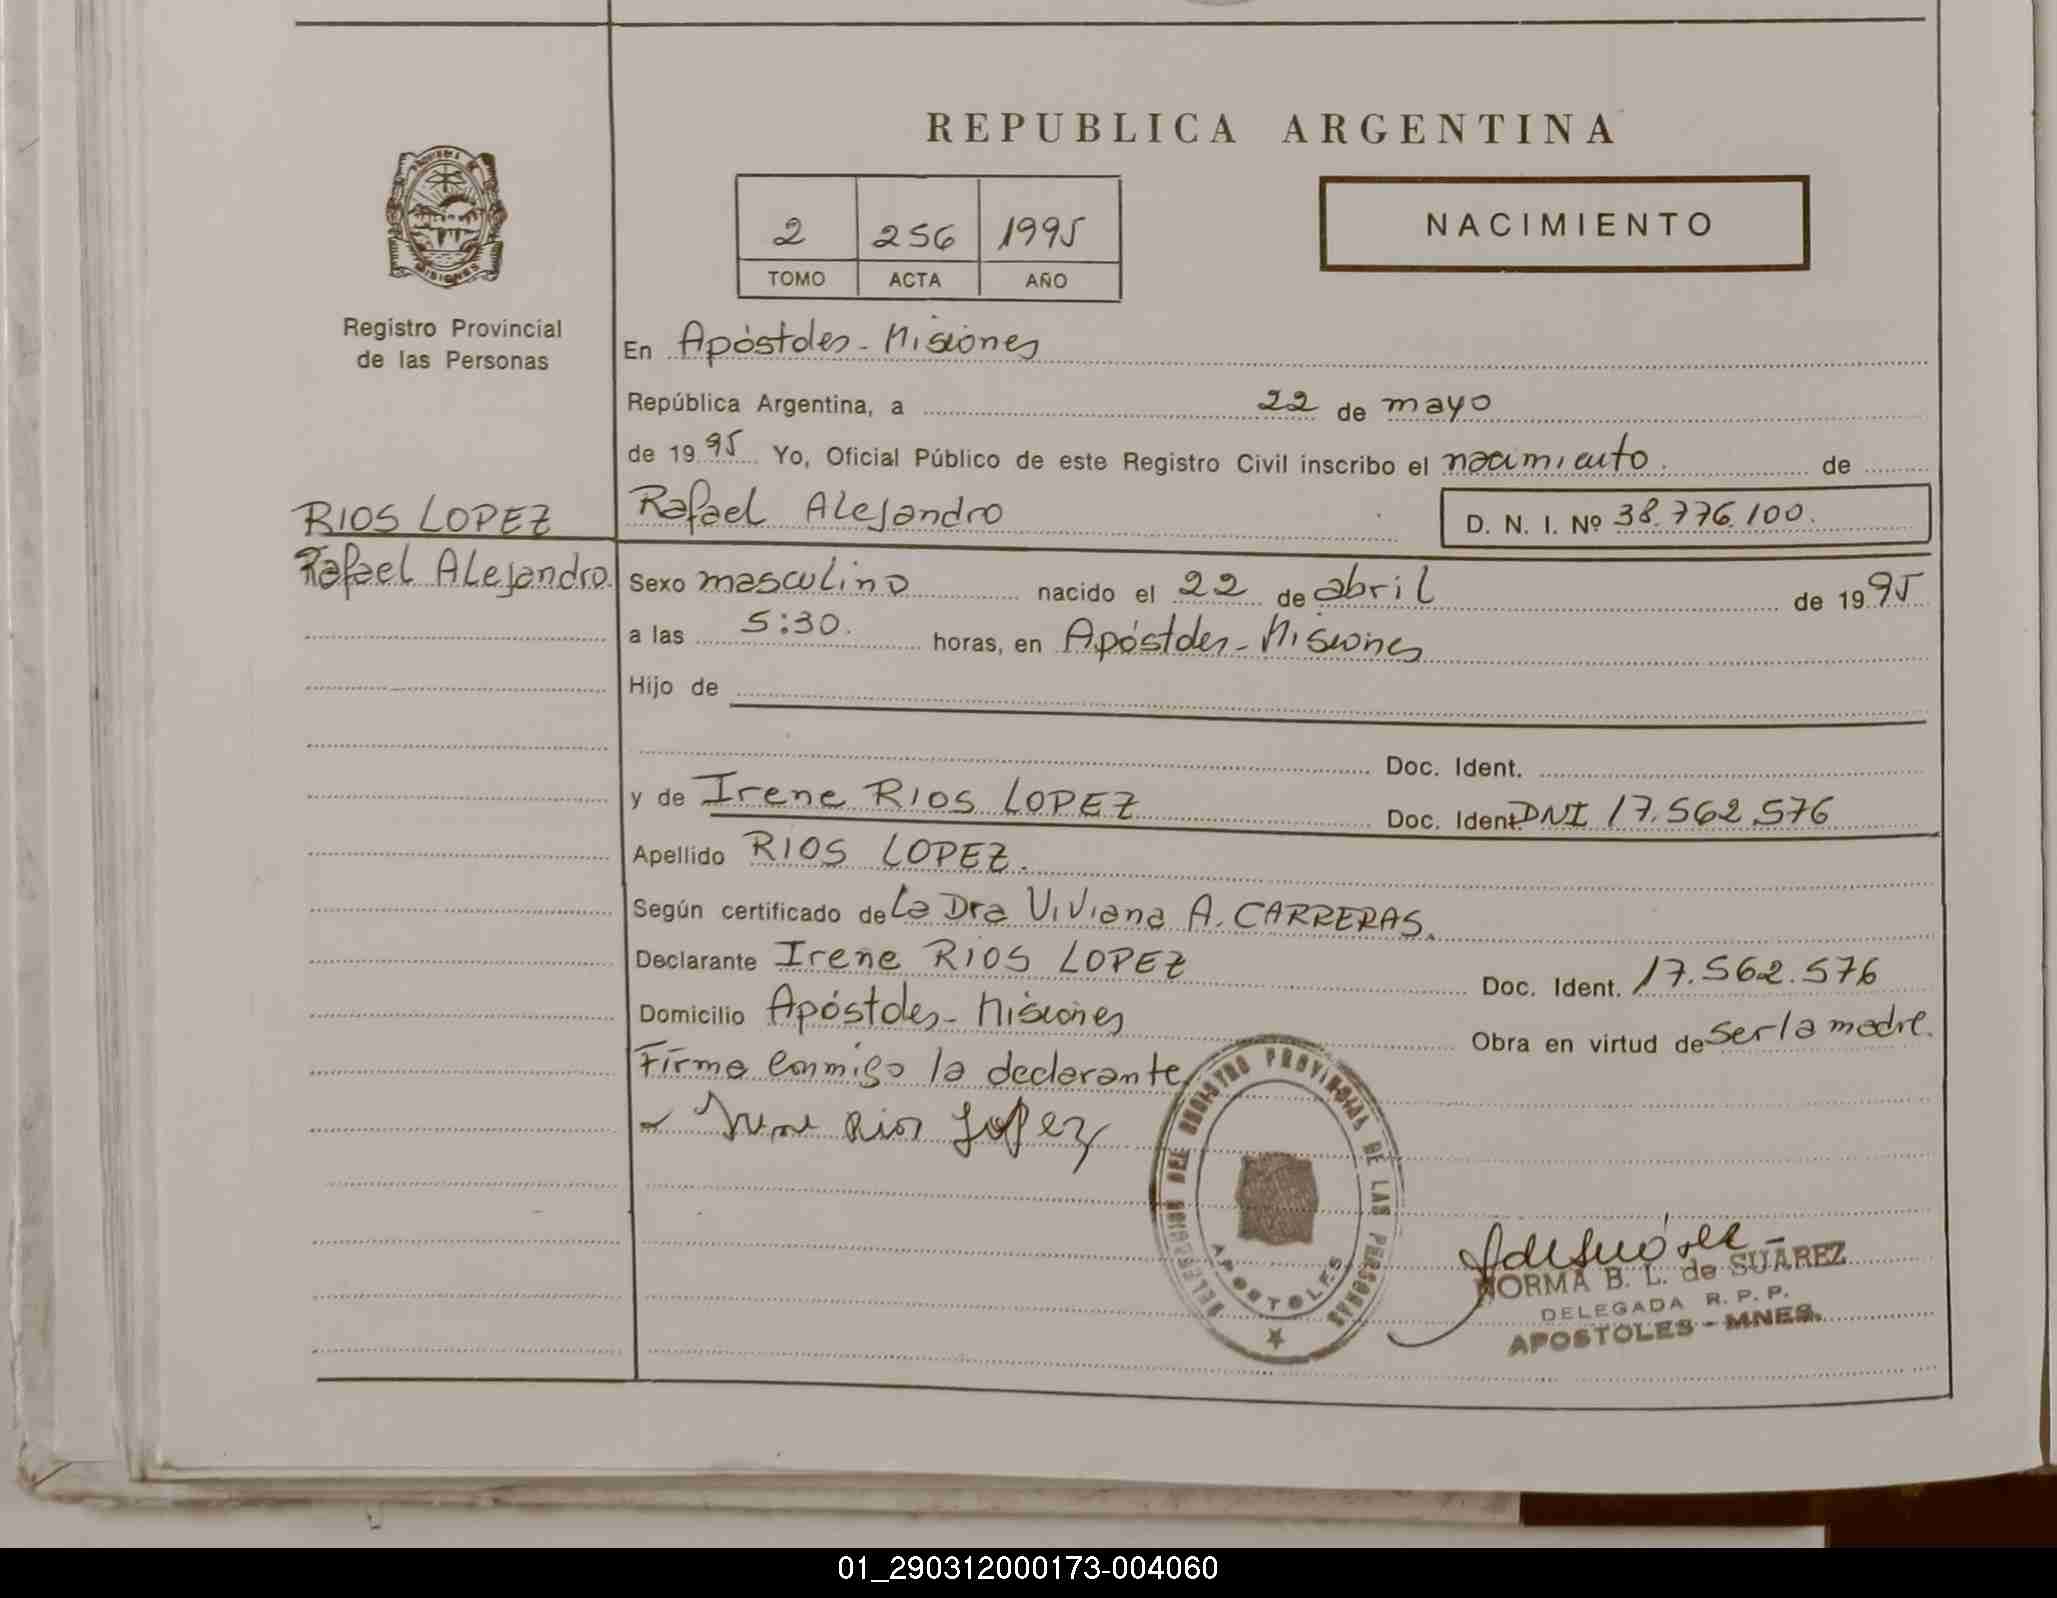 REPUBLICA ARGENTINA
2 256 1995
TOMO ACTA AÑO
NACIMIENTO
MISIONES
Registro Provincial
de las Personas
En Apóstoles - Misiones
República Argentina, a 22 de mayo
de 19 95 Yo, Oficial Público de este Registro Civil inscribo el nacimiento de
RIOS LOPEZ
Rafael Alejandro
Rafael Alejandro D. N. I. Nº 38.776.100.
Sexo masculino nacido el 22 de abril de 19 95
a las 5:30. horas, en Apóstoles - Misiones
Hijo de
Doc. Ident.
y de Irene RIOS LOPEZ Doc. Ident. DNI 17.562.576
Apellido RIOS LOPEZ.
Según certificado de La Dra Viviana A. CARRERAS.
Declarante Irene RIOS LOPEZ Doc. Ident. 17.562.576
Domicilio Apóstoles - Misiones Obra en virtud de ser la madre.
Firma conmigo la declarante
Irene Rios Lopez
DELEGACION DEL REGISTRO PROVINCIAL DE LAS PERSONAS
APOSTOLES
NORMA B. L. de SUAREZ
DELEGADA R. P. P.
APOSTOLES - MNES.
01_290312000173-004060